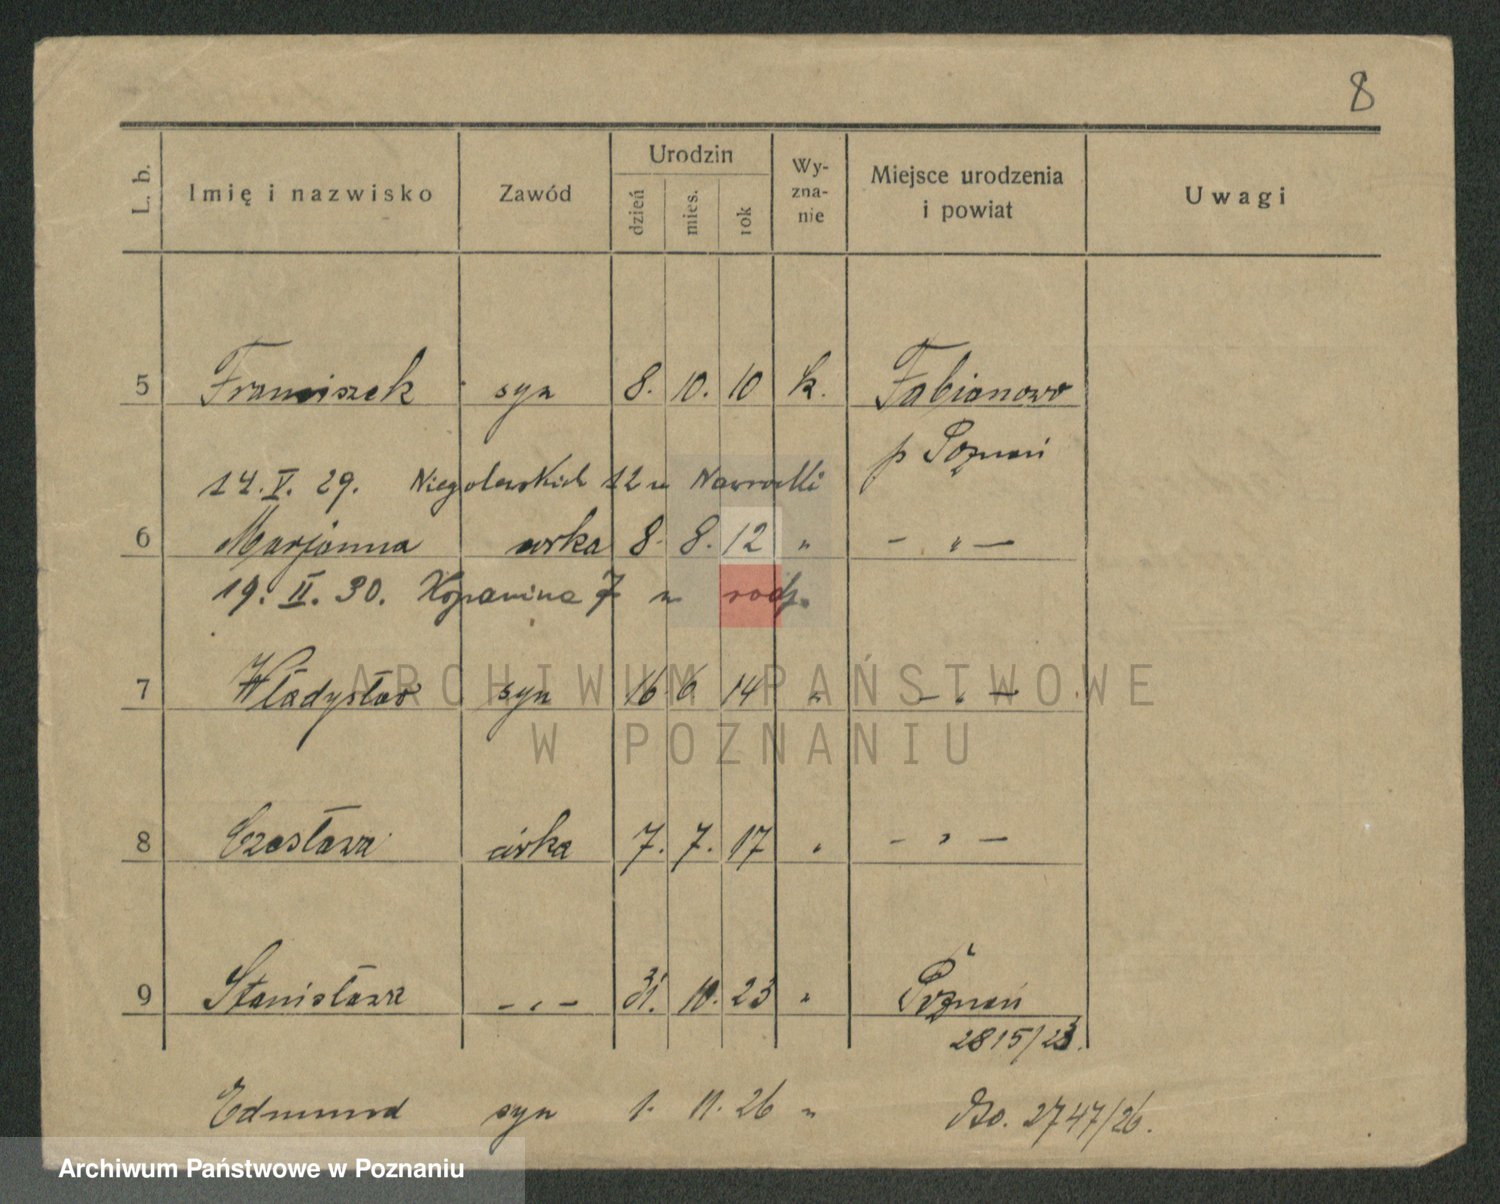 8
L. b. Imię i nazwisko Zawód Urodzin dzień mies. rok Wy-zna-nie Miejsce urodzenia i powiat Uwagi
5 Franciszek syn 8. 10. 10 k. Fabianowo
p Poznań
14. V. 29. Niegolewskich 12 u Nawrocki
6 Marjanna córka 8. 8. 12 " — " —
19. II. 30. Kopanina 7 u rodz.
7 Władysław syn 16 6 14 " — " —
ARCHIWUM PAŃSTWOWE
W POZNANIU
8 Czesława córka 7. 7. 17 " — " —
9 Stanisława — " — 31. 10. 23 " Poznań
2815/23.
Edmund syn 1. 11. 26 " 2747/26.
Archiwum Państwowe w Poznaniu